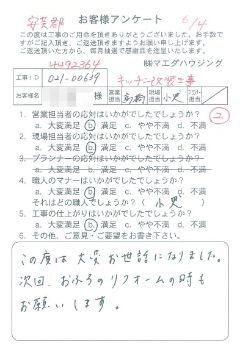 安芸郡
お客様アンケート
6/4
この度は工事のご用命を頂きありがとうございました。お手数で
すがご記入頂き、ご返送頂きますようお願い申し上げます。
ご返送頂いた方の中から、毎月抽選で感謝品を進呈いたします。
4492364
㈱マエダハウジング
工事ID 041-00664
キッチン改装工事
お客様名 様 営業担当 現場担当 小児 プランナー担当
1. 営業担当者の応対はいかがでしたでしょうか?
a. 大変満足 b. 満足 c. やや不満 d. 不満
②
2. 現場担当者の応対はいかがでしたでしょうか?
a. 大変満足 b. 満足 c. やや不満 d. 不満
3. プランナーの応対はいかがでしたでしょうか?
a. 大変満足 b. 満足 c. やや不満 d. 不満
4. 職人のマナーはいかがでしたでしょうか?
a. 大変満足 b. 満足 c. やや不満 d. 不満
それはどの職人でしょうか?( 小児 )
5. 工事の仕上がりはいかがでしたでしょうか?
a. 大変満足 b. 満足 c. やや不満 d. 不満
6. その他、ご意見・ご要望をお書き下さい。
この度は大変お世話になりました。
次回、おふろのリフォームの時も
お願いします。